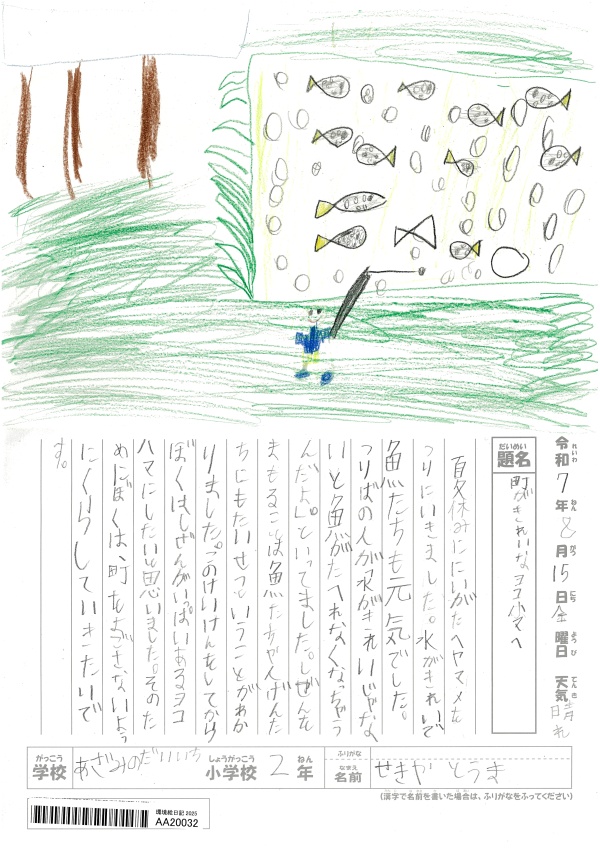 令和7年8月15日金曜日 天気晴れ
れいわ ねん がつ にち ようび てんき
だいめい
題名
町がきれいなヨコハマへ
夏休みににいがたへヤマメを
つりにいきました。水がきれいで
魚たちも元気でした。
つりばの人が「水がきれいじゃな
いと魚がたべれなくなっちゃう
んだよ。」といってました。しぜんを
まもることは魚たちやんげんた
ちにもたいせつということがわか
りました。このけいけんをしてから
ぼくはしぜんがいっぱいあるヨコ
ハマにしたいと思いました。そのた
めにぼくは、町をよごさないよう
にくらしていきたいで
す。
がっこう
学校
あざみのだいいち
しょうがっこう
小学校
2
ねん
年
ふりがな
なまえ
名前
せきや とうま
(漢字で名前を書いた場合は、ふりがなをふってください)
環境絵日記 2025
AA20032